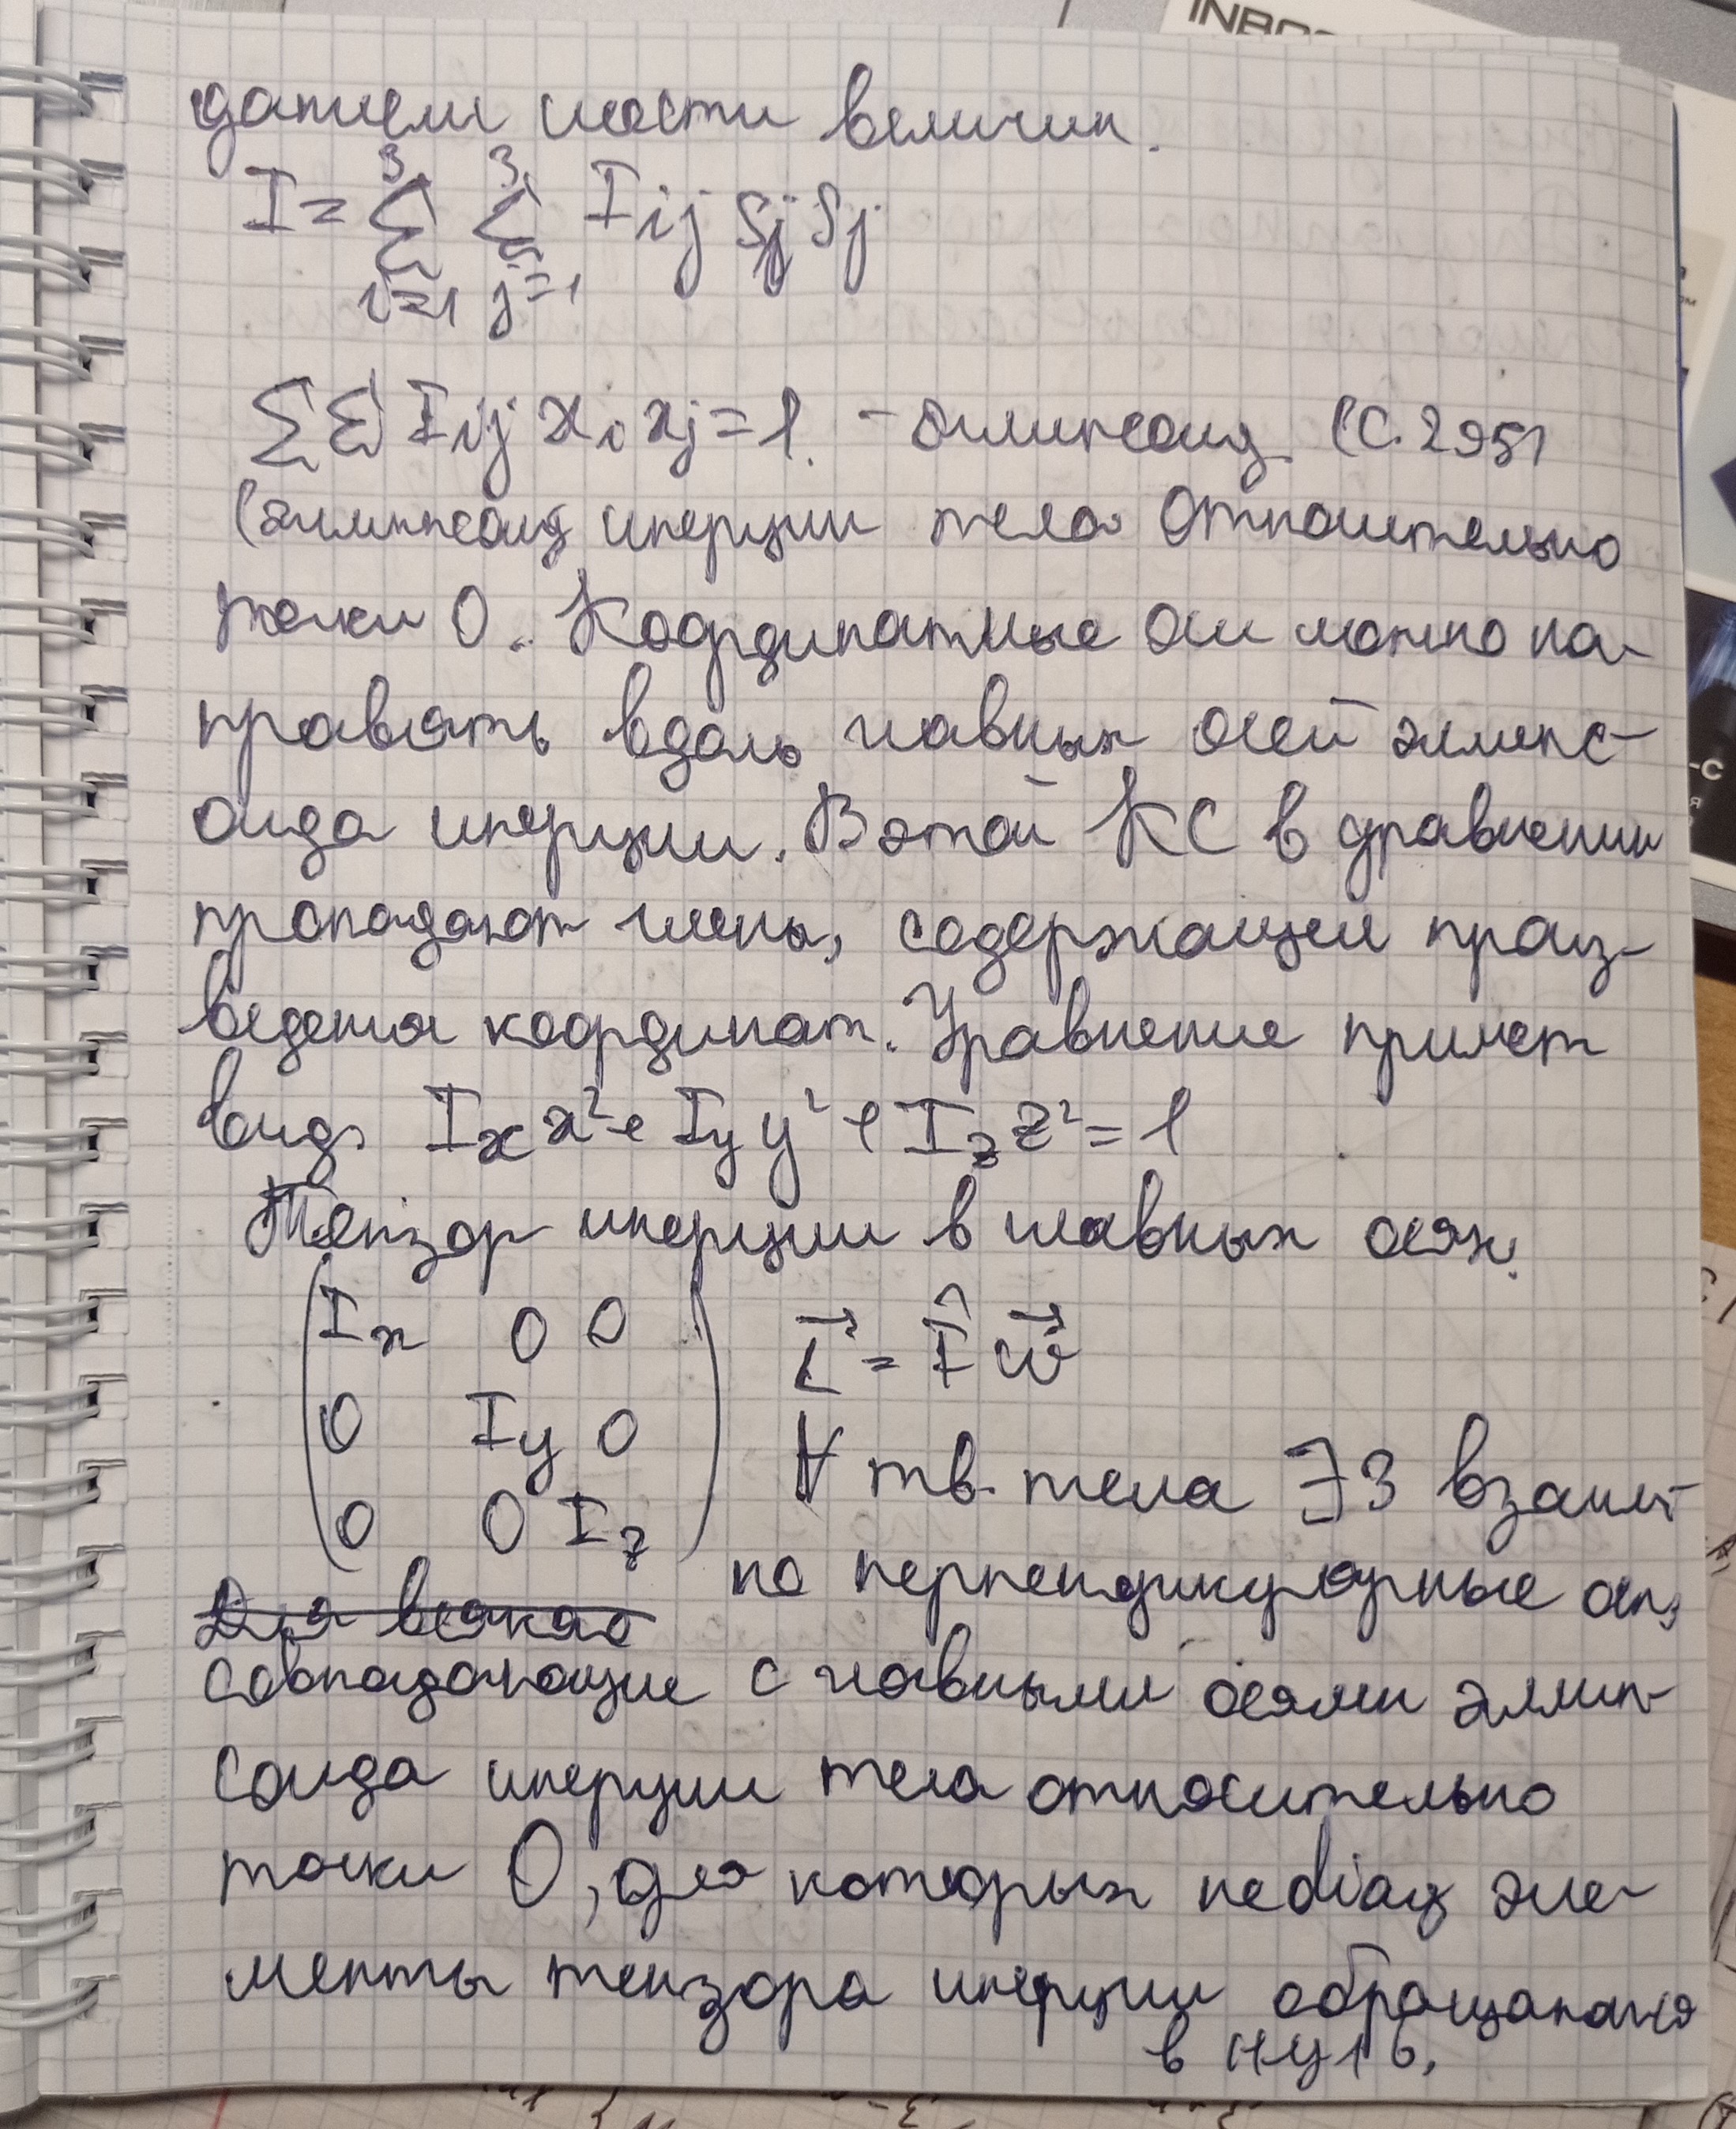 INBO
данием шести величин.
I = ∑_{i=1}^{3} ∑_{j=1}^{3} I_{ij} S_j S_j
∑∑ I_{ij} x_i x_j = 1. - эллипсоид (С. 295)
(эллипсоид инерции тела относительно
точки О. Координатные оси можно на-
правлять вдоль главных осей эллипс-
оида инерции. В этой КС в уравнении
пропадают члены, содержащей произ-
ведения координат. Уравнение примет
вид. I_x x² + I_y y² + I_z z² = 1
Тензор инерции в главных осях.
(I_x 0 0
0 I_y 0
0 0 I_z)
L⃗ = Î ω⃗
∀ тв. тела ∃ 3 взаим-
но перпендикулярные оси,
Для всякого
совпадающие с главными осями эллип-
соида инерции тела относительно
точки О, для которых неdiag эле-
менты тензора инерции обращаются
в нуль.